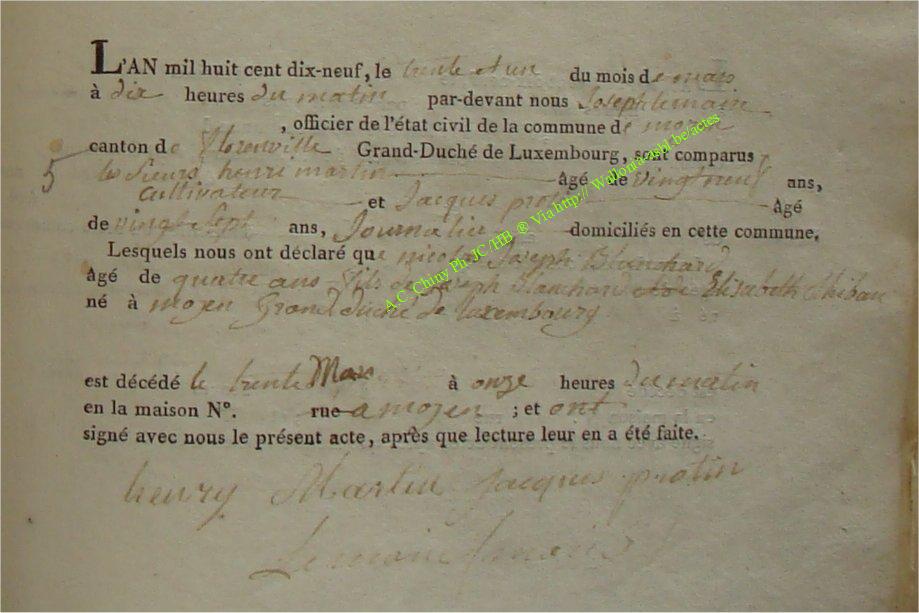 L'AN mil huit cent dix-neuf, le trente et un du mois de mars
à dix heures du matin par-devant nous Joseph lemaire
, officier de l'état civil de la commune de moyen
canton de florenville Grand-Duché de Luxembourg, sont comparus
5 les sieurs henri martin âgé de vingt neuf ans,
Cultivateur et Jacques protin Agé
de vingt sept ans, Journalier domiciliés en cette commune.
Lesquels nous ont déclaré que nicolas Joseph Blanchard
Agé de quatre ans fils de Joseph Blanchard et de Elisabeth
né à moyen Grand duché de Luxembourg
est décédé le trente Mars à onze heures du matin
en la maison N°. rue a moyen ; et ont
signé avec nous le présent acte, après que lecture leur en a été faite.
henry Martin Jacques protin
Lemaire
A.C. Chiny Ph JC /HB ® Via http:// Wallonia asbl be/actes